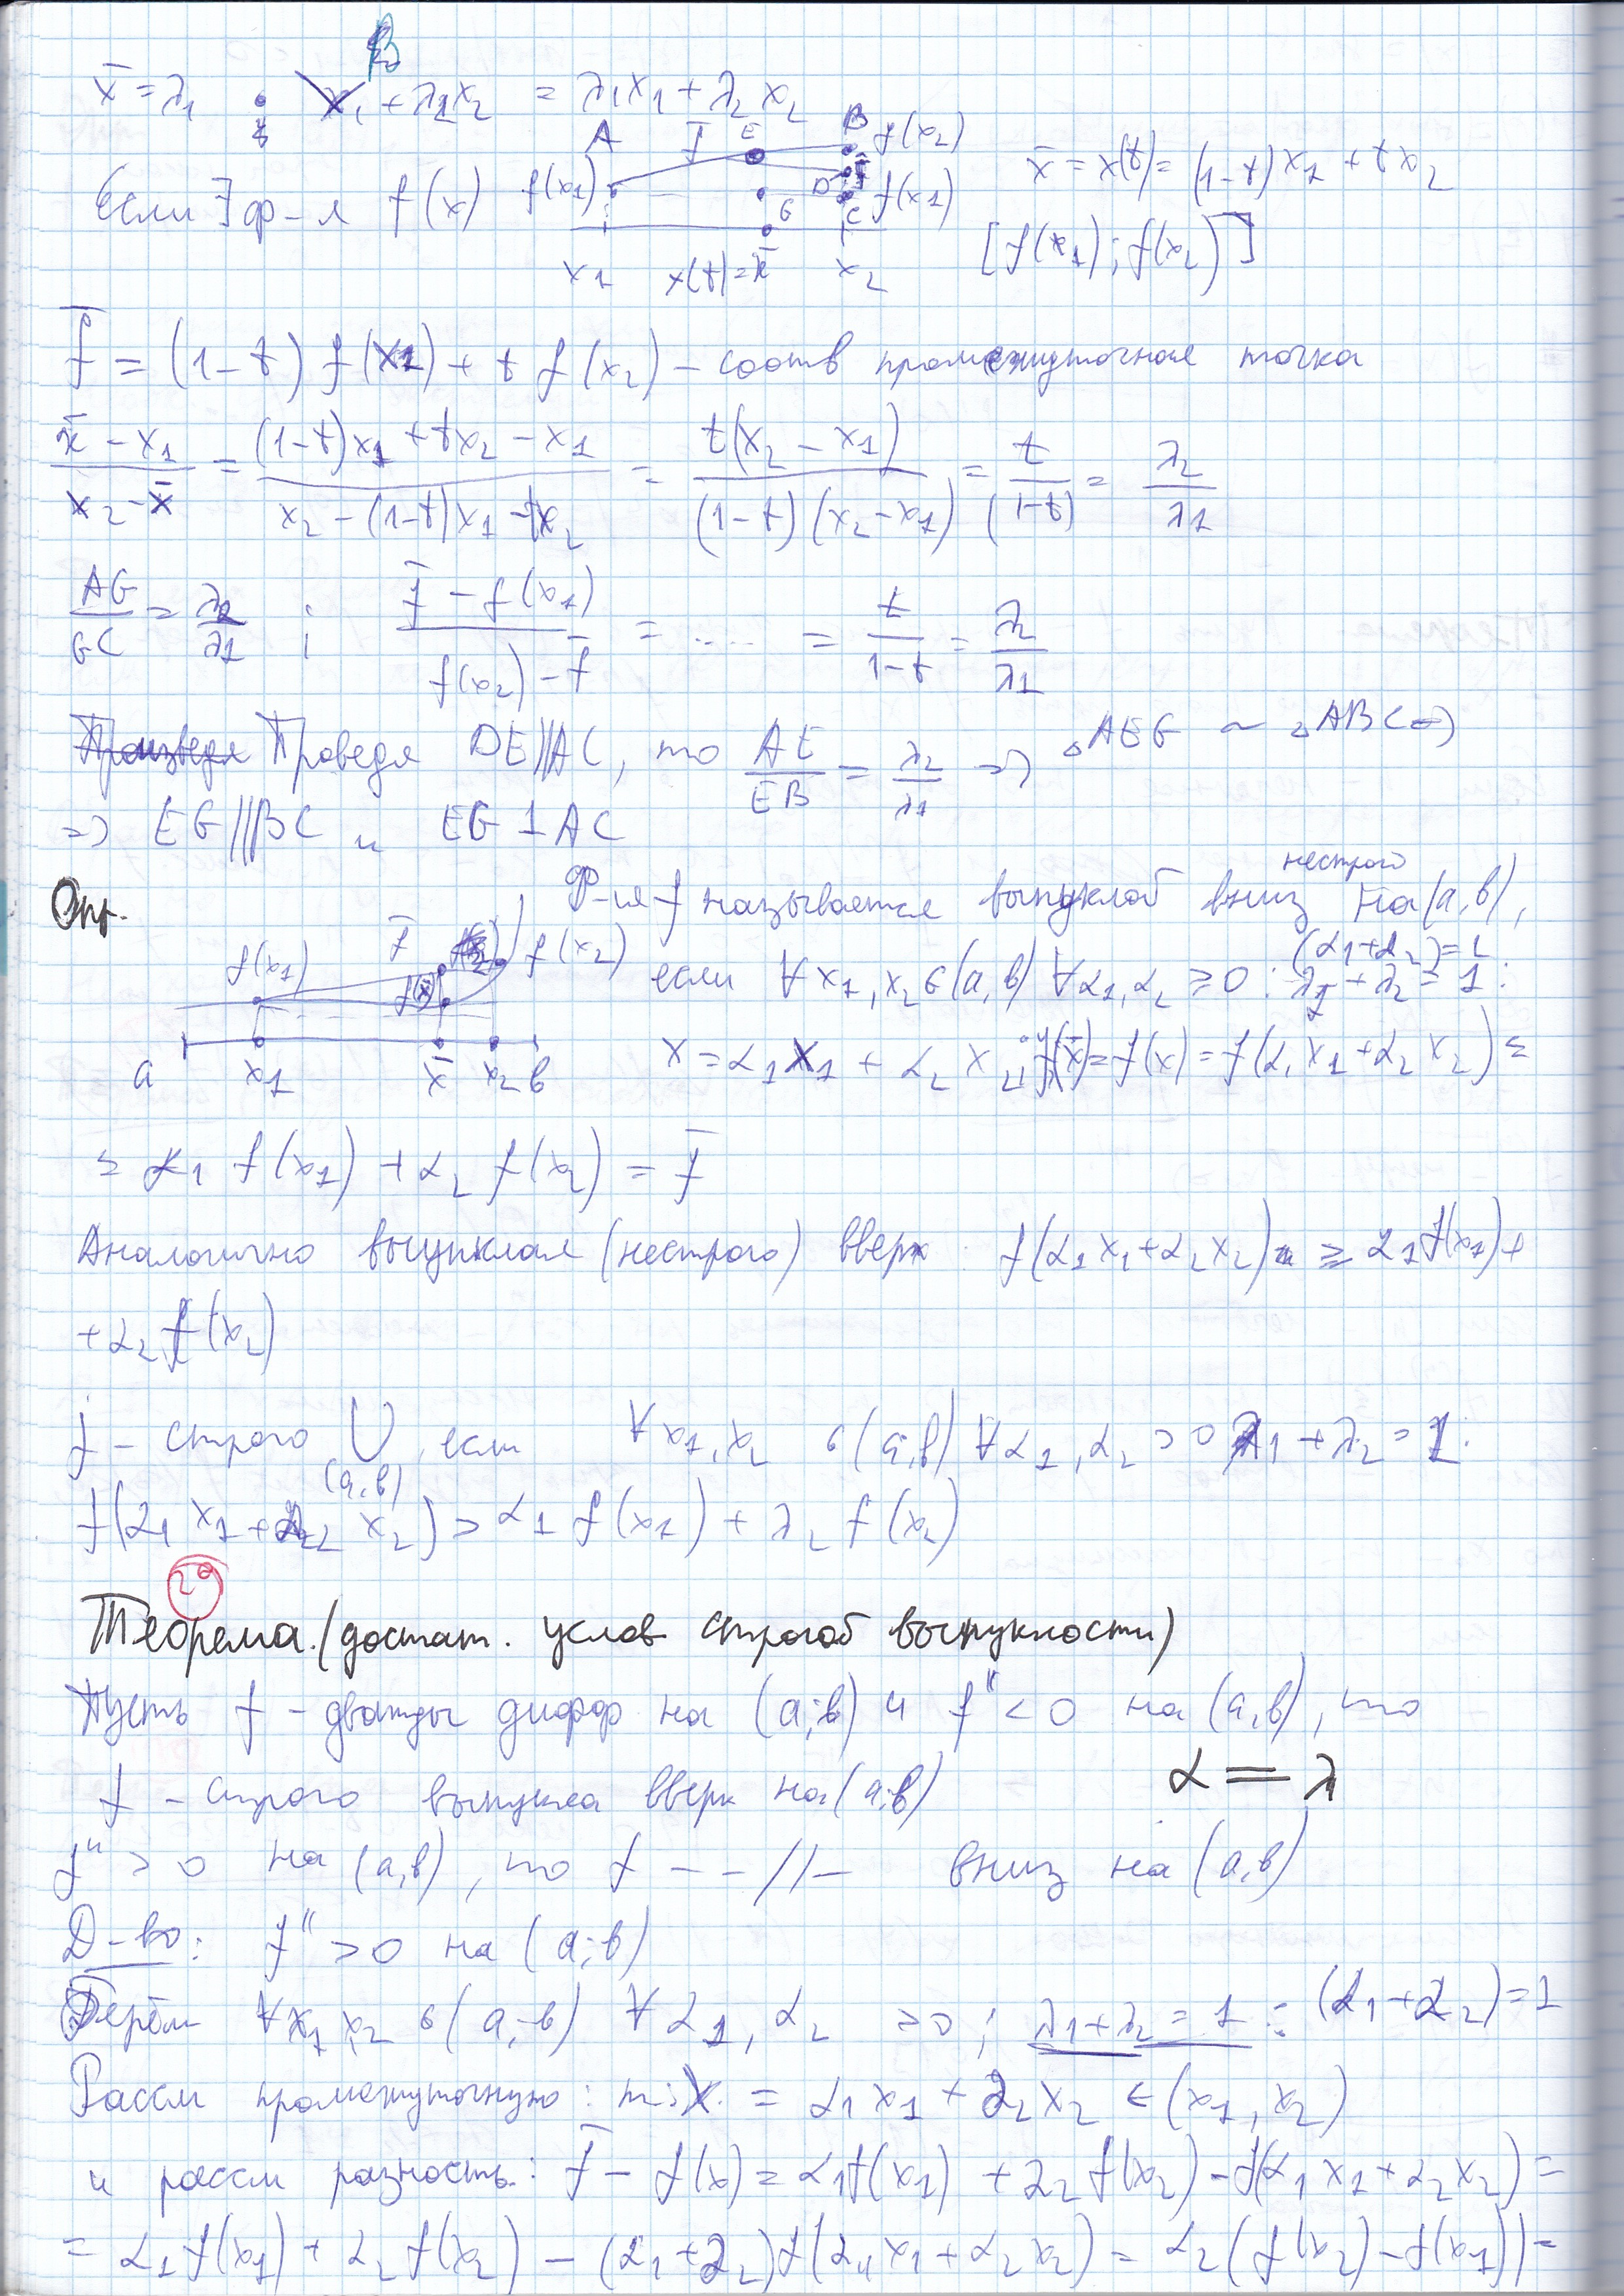 x̄ = λ₁ x₁ + λ₂x₂ = λ₁x₁ + λ₂x₂
B
Если ∃ ф-я f(x)
A f̄ E B f(x₂)
f(x₁) D G C f(x₁)
x₁ x(t)=x̄ x₂
x̄ = x(t) = (1-t)x₁ + tx₂
[f(x₁); f(x₂)]
f̄ = (1-t) f(x₁) + t f(x₂) - соотв промежуточная точка
(x̄ - x₁)/(x₂ - x̄) = ((1-t)x₁ + tx₂ - x₁)/(x₂ - (1-t)x₁ - tx₂) = t(x₂ - x₁)/((1-t)(x₂-x₁)) = t/(1-t) = λ₂/λ₁
AG/GC = λ₂/λ₁ ; (f̄ - f(x₁))/(f(x₂) - f̄) = ..... = t/(1-t) = λ₂/λ₁
Произведя Проведя DE||AC, то AE/EB = λ₂/λ₁ => △AEG ~ △ABC =>
=> EG||BC и EG⊥AC
Опр. Ф-ия f называется выпуклой вниз нестрого на (a,b),
f(x₁) f̄ f(x̄) f(x₂)
a x₁ x̄ x₂ b
если ∀x₁,x₂ ∈ (a,b) ∀α₁,α₂ ≥ 0 : λ₁+λ₂ = 1 : (α₁+α₂)=1
x = α₁x₁ + α₂x₂ ; f(x̄) = f(x) = f(α₁x₁+α₂x₂) ≤
≤ α₁ f(x₁) + α₂ f(x₂) = f̄
Аналогично выпуклая (нестрого) вверх f(α₁x₁+α₂x₂) ≥ α₁f(x₁)+
+α₂ f(x₂)
f - строго ∪ (a,b) если ∀x₁,x₂ ∈ (a,b) ∀α₁,α₂ > 0 λ₁+λ₂ = 1:
f(α₁x₁+α₂x₂) > α₁ f(x₁) + λ₂ f(x₂)
2⁰
Теорема. (достат. услов строгой выпукности)
Пусть f - дважды дифф на (a;b) и f'' < 0 на (a,b), то
f - строго выпукла вверх на (a;b)
α = λ
f'' > 0 на (a,b), то f - - // - вниз на (a,b)
Д-во: f'' > 0 на (a;b)
Берём ∀x₁,x₂ ∈ (a;b) ∀α₁,α₂ >0; λ₁+λ₂ = 1 : (α₁+α₂)=1
Рассм промежуточную: т. x = α₁x₁ + α₂x₂ ∈ (x₁,x₂)
и рассм разность: f̄ - f(x) = α₁f(x₁) + α₂f(x₂) - f(α₁x₁+α₂x₂) =
= α₁f(x₁) + α₂f(x₂) - (α₁+α₂)f(α₁x₁+α₂x₂) = α₂(f(x₂)-f(x₁)) =